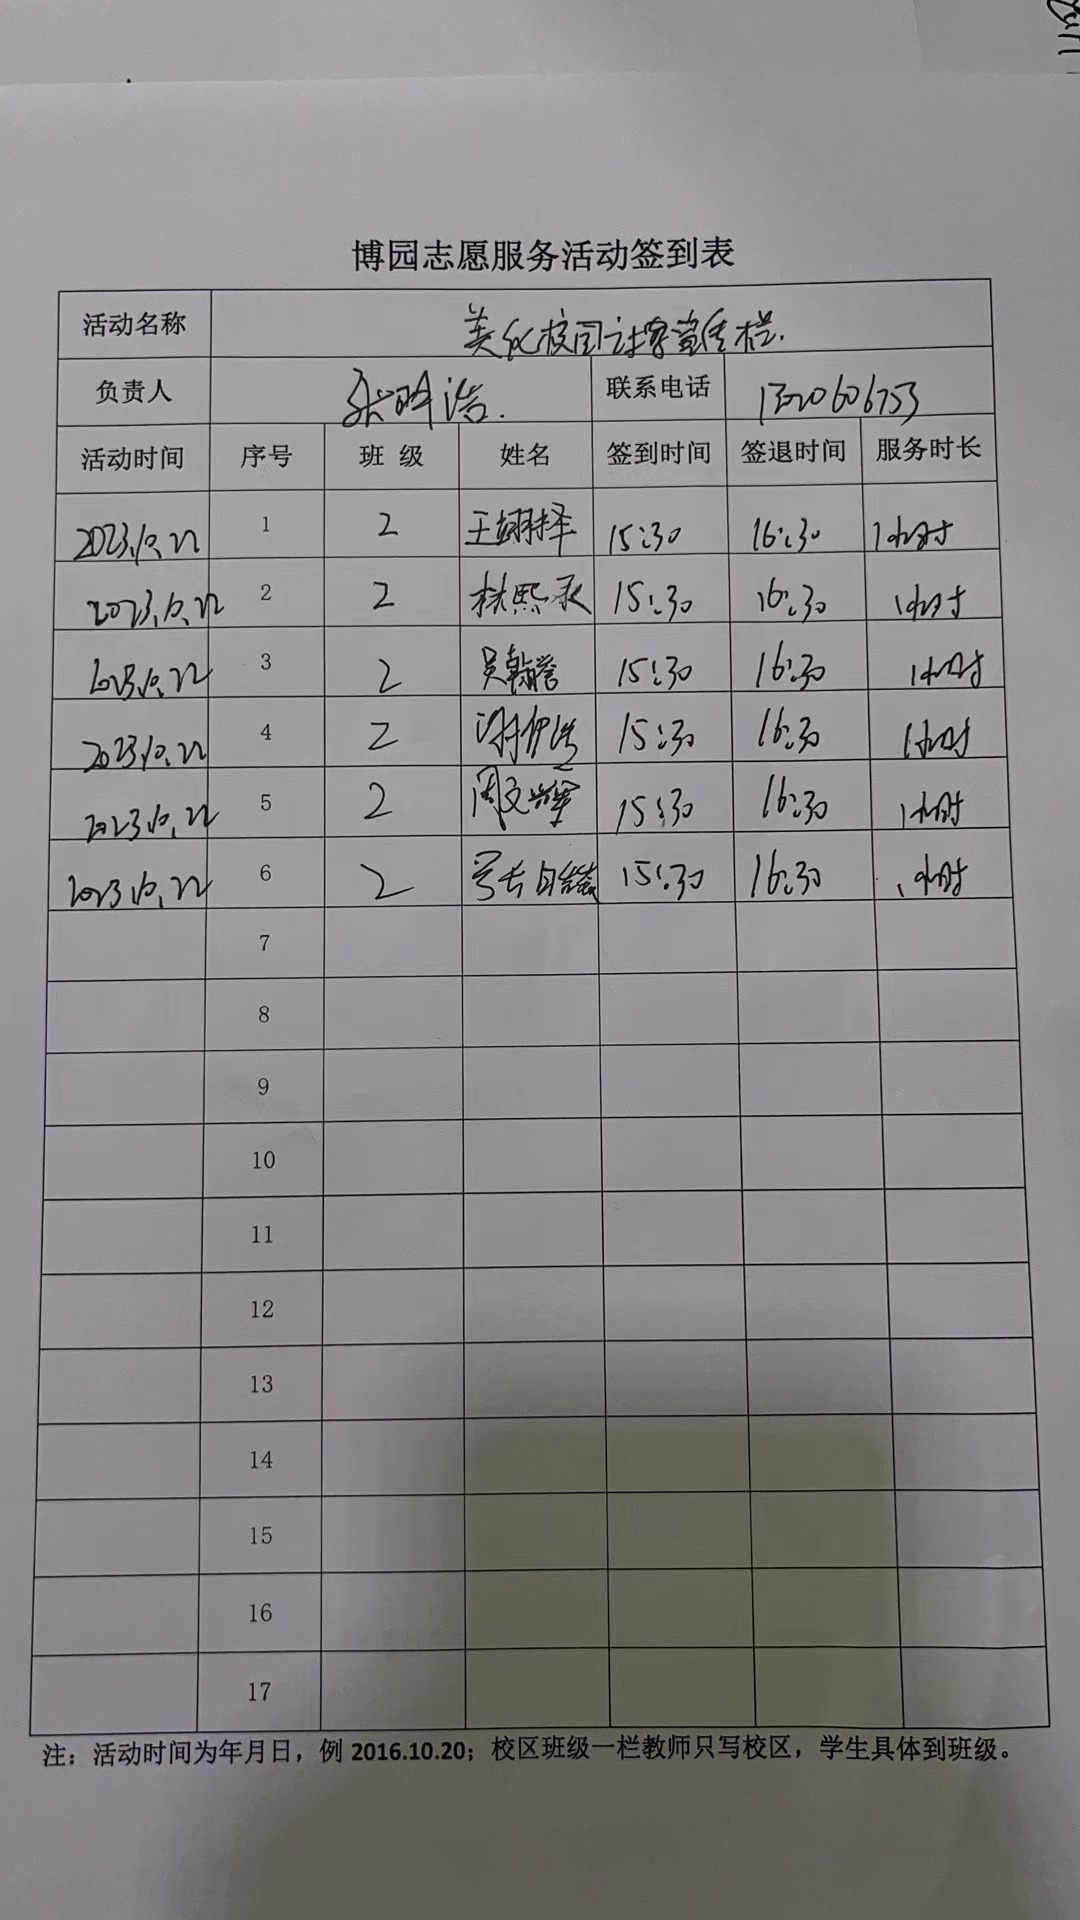 博园志愿服务活动签到表
活动名称 美化校园计字宣传栏.
负责人 张明浩. 联系电话
活动时间 序号 班 级 姓名 签到时间 签退时间 服务时长
2023.10.22 1 2 王翊择 15:30 16:30 1小时
2023.10.22 2 2 林熙 15:30 16:30 1小时
2023.10.22 3 2 吴翰誉 15:30 16:30 1小时
2023.10.22 4 2 15:30 16:30 1小时
2023.10.22 5 2 周文 15:30 16:30 1小时
2023.10.22 6 2 15:30 16:30 1小时
7
8
9
10
11
12
13
14
15
16
17
注：活动时间为年月日，例 2016.10.20；校区班级一栏教师只写校区，学生具体到班级。